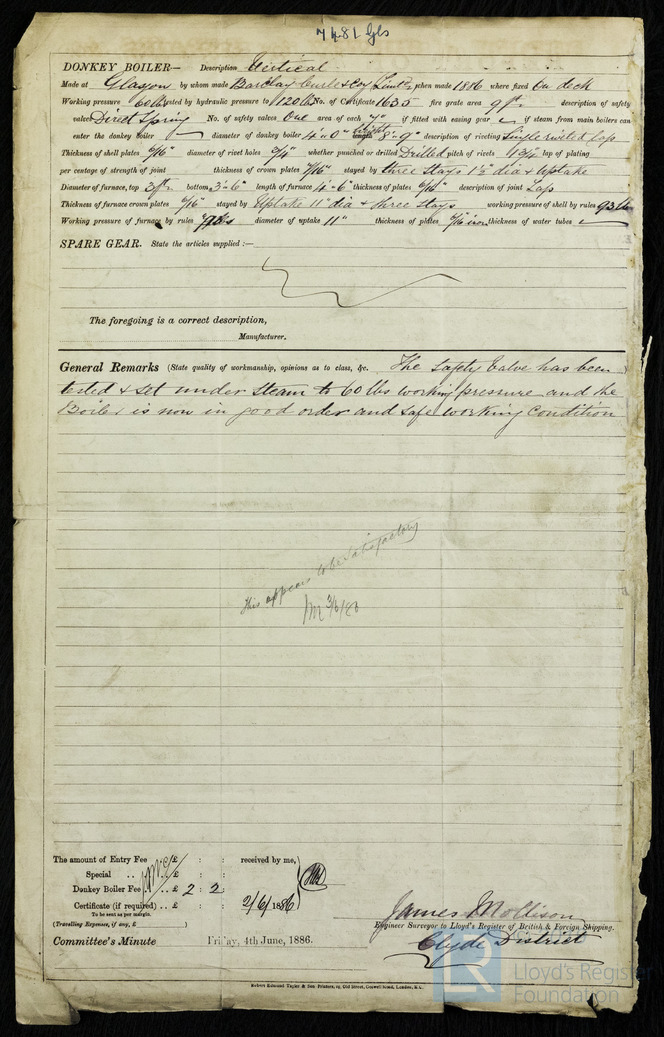 7481 Gls
DONKEY BOILER— Description Vertical
Made at Glasgow by whom made Barclay Curle & Coy Limtd when made 1886 where fixed On deck
Working pressure 60 lbs tested by hydraulic pressure to 120 lbs No. of Certificate 1635 fire grate area 9 ft description of safety
valves Direct Spring No. of safety valves One area of each 7" if fitted with easing gear if steam from main boilers can
enter the donkey boiler diameter of donkey boiler 4'-0" length height 8'-9" description of riveting Single riveted Lap
Thickness of shell plates 6/16" diameter of rivet holes 3/4" whether punched or drilled Drilled pitch of rivets 1 3/4" lap of plating
per centage of strength of joint thickness of crown plates 7/16" stayed by three Stays 1½" dia & Uptake
Diameter of furnace, top 3 ft bottom 3'-6" length of furnace 4'-6" thickness of plates 6/16" description of joint Lap
Thickness of furnace crown plates 7/16" stayed by Uptake 11" dia & three Stays working pressure of shell by rules 93 lbs
Working pressure of furnace by rules diameter of uptake 11" thickness of plates 7/16 iron thickness of water tubes
SPARE GEAR. State the articles supplied :—
The foregoing is a correct description,
Manufacturer.
General Remarks (State quality of workmanship, opinions as to class, &c. The Safety Valve has been
tested & set under Steam to 60 lbs working pressure and the
Boiler is now in good order and safe working Condition
This appears to be satisfactory
3/6/86
The amount of Entry Fee £ : : received by me,
Special .. £ : :
Donkey Boiler Fee .. £ 2 : 2 :
Certificate (if required) .. £ : : 2/6/1886
To be sent as per margin.
(Travelling Expenses, if any, £ )
James Mollison
Engineer Surveyor to Lloyd's Register of British & Foreign Shipping.
Clyde District
Committee's Minute Friday, 4th June, 1886.
Robert Edmund Taylor & Son Printers, 19, Old Street, Goswell Road, London, E.C.
LR
Lloyd's Register
Foundation